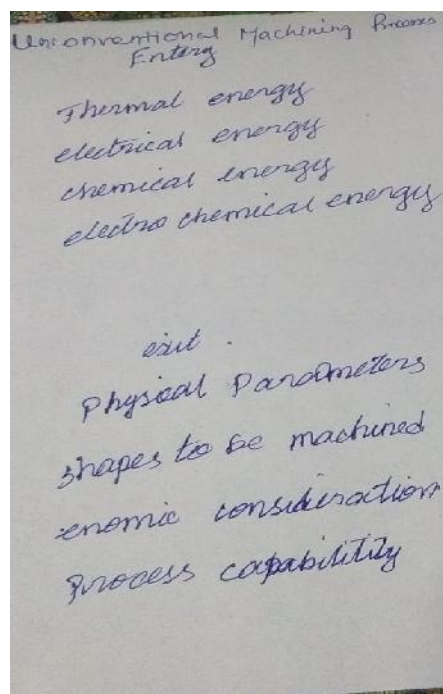 Unconventional Machining Processes
Entery
Thermal energy
electrical energy
chemical energy
electro chemical energy
exit .
Physical Parameters
shapes to be machined
enomic consideration
Process capabilitity